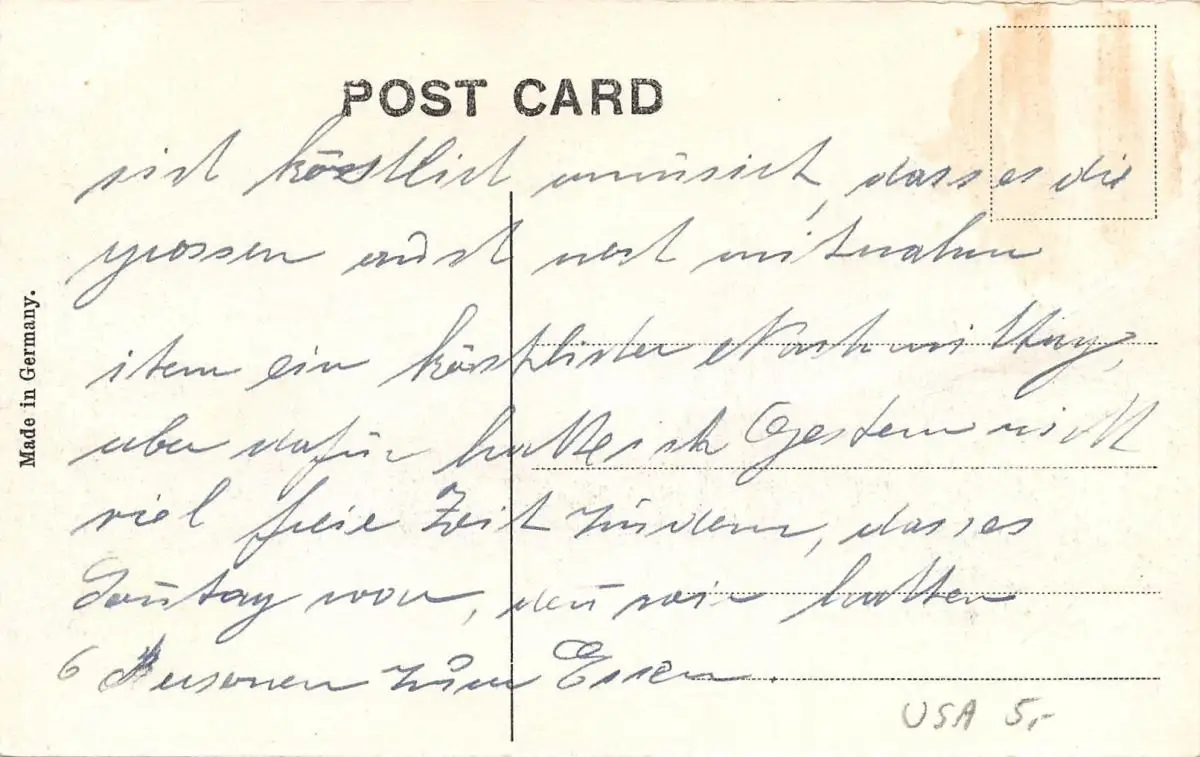 POST CARD
sich köstlich amüsirt, dass es die
grossen auch noch mitnahm
item ein köstlicher Nachmittag,
aber dafür hatte ich Gestern nicht
viel freie Zeit zudem, dass es
Soñtag war, deñ wir hatten
6 Personen zum Essen.
Made in Germany.
USA 5,-